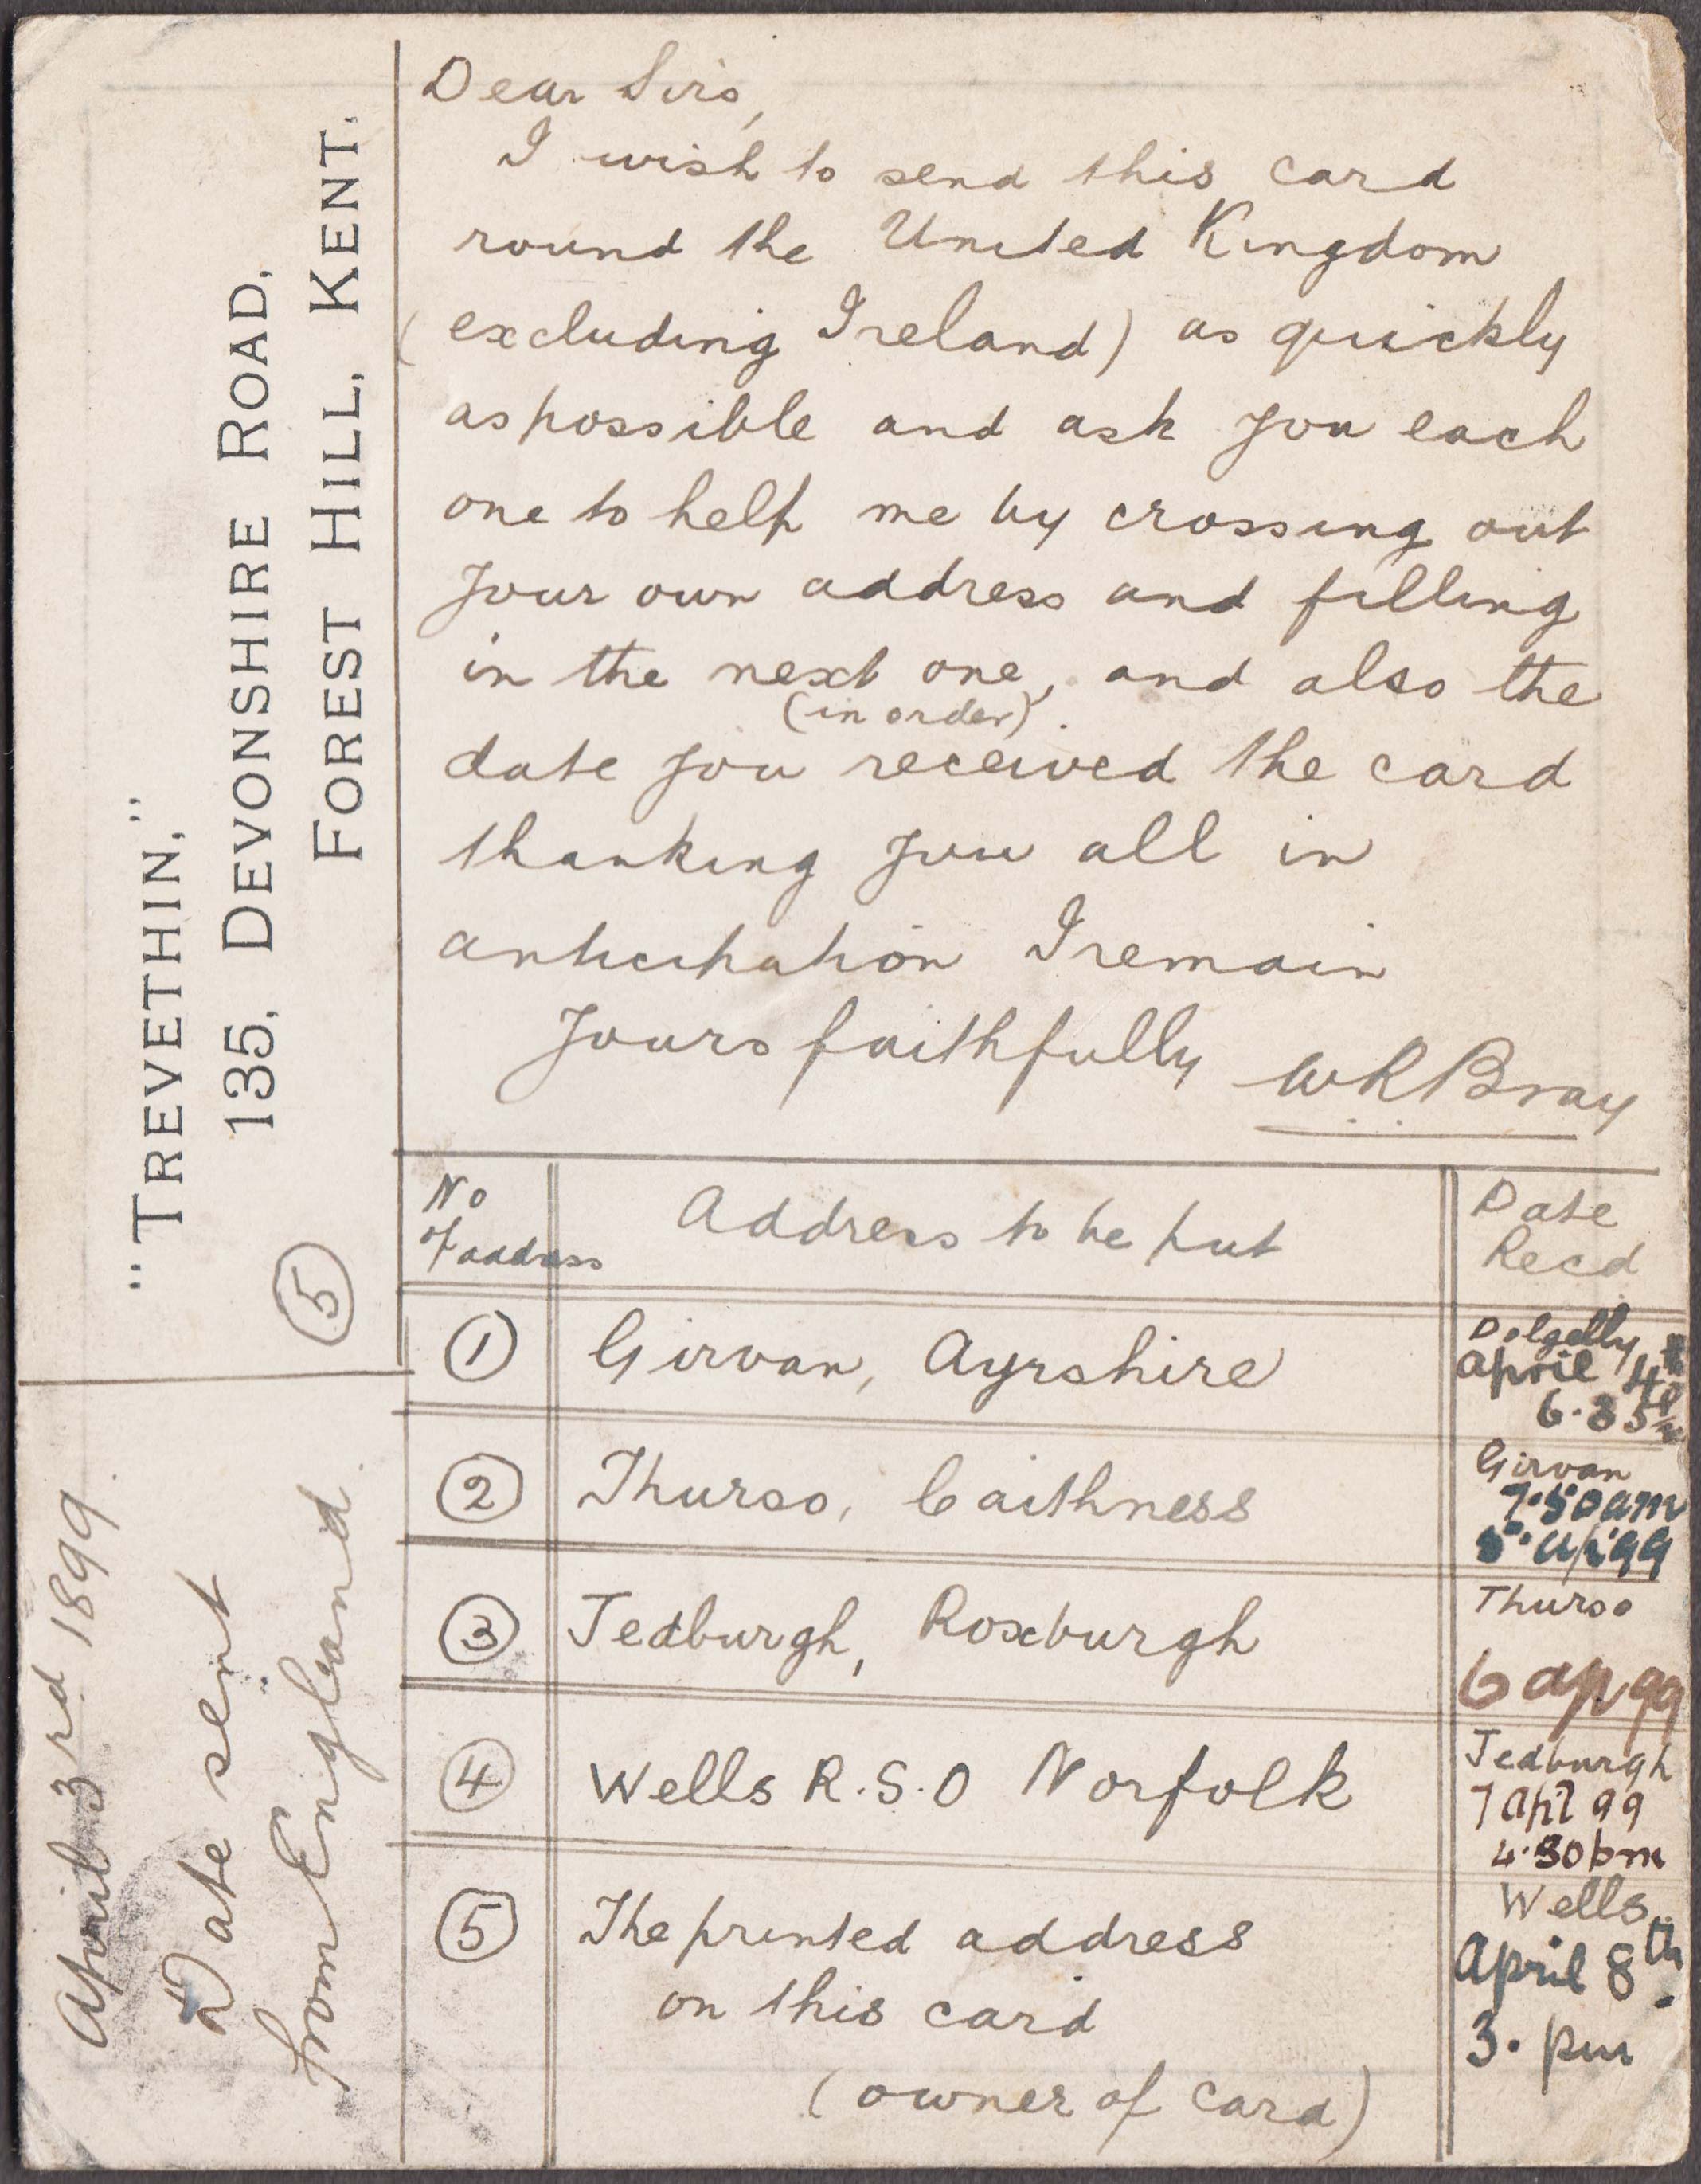 "TREVETHIN,"
135, DEVONSHIRE ROAD,
FOREST HILL, KENT.
5
April 3rd 1899
Date sent
from England.
Dear Sirs,
I wish to send this card
round the United Kingdom
(excluding Ireland) as quickly
as possible and ask you each
one to help me by crossing out
your own address and filling
in the next one, and also the
(in order).
date you received the card
thanking you all in
anticipation I remain
Yours faithfully WRBray
No of address Address to be put Date Recd
1 Girvan, Ayrshire Dolgelly April 4th 6.35 pm
2 Thurso, Caithness Girvan 7.50am 5.Ap.99
3 Jedburgh, Roxburgh Thurso 6 ap 99
4 Wells R.S.O Norfolk Jedburgh 7 Apl 99 4.30pm
5 The printed address Wells April 8th.
on this card 3. pm
(owner of card)